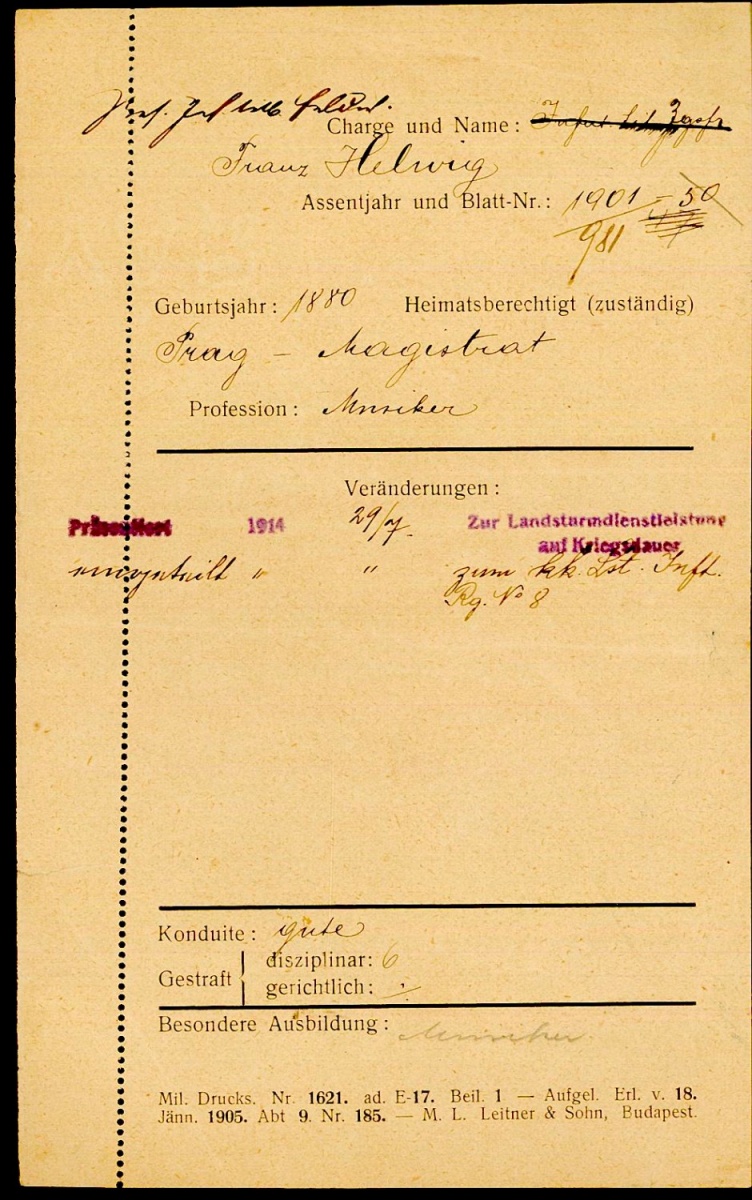 Charge und Name:
Franz Helwig
Assentjahr und Blatt-Nr.: 1901 - 50
981
Geburtsjahr: 1880 Heimatsberechtigt (zuständig)
Prag - Magistrat
Profession: Musiker
Veränderungen:
Präsentiert 1914 29/7. Zur Landsturmdienstleistung
auf Kriegsdauer
eingeteilt " " zum k.k. Lst. Inft.
Rg. No 8
Konduite: gute
Gestraft disziplinar: 6
gerichtlich: /
Besondere Ausbildung: Musiker
Mil. Drucks. Nr. 1621. ad. E-17. Beil. 1 — Aufgel. Erl. v. 18.
Jänn. 1905. Abt 9. Nr. 185. — M. L. Leitner & Sohn, Budapest.